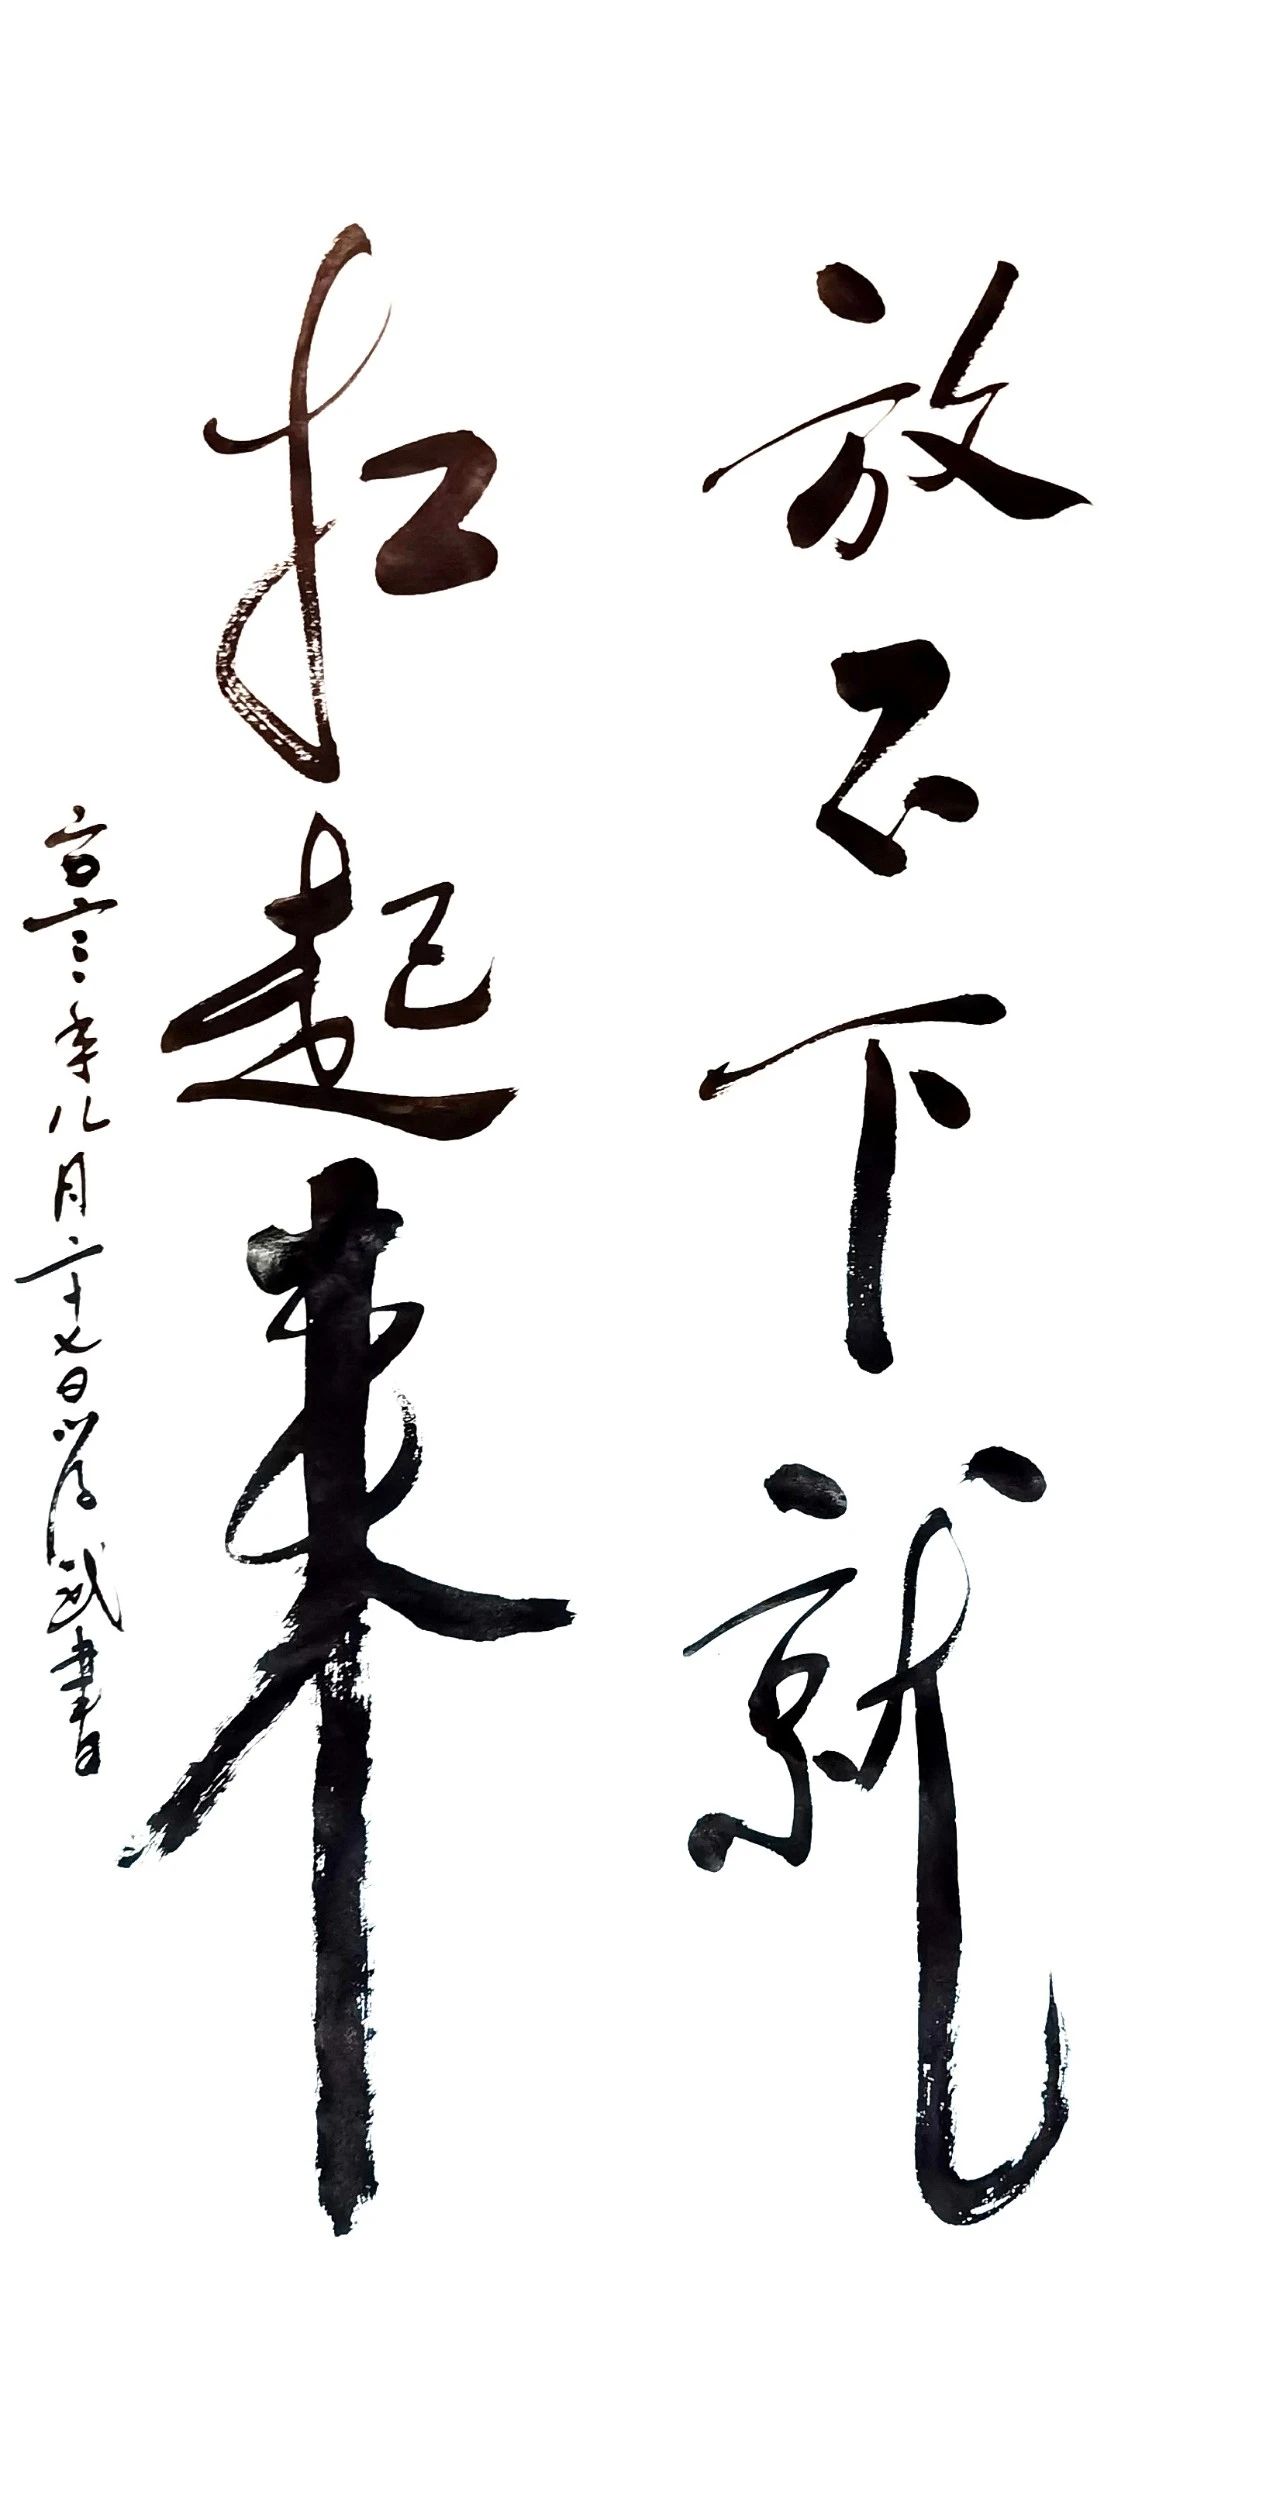 放不下就
扛起来
二〇二二年八月二十七日 武書